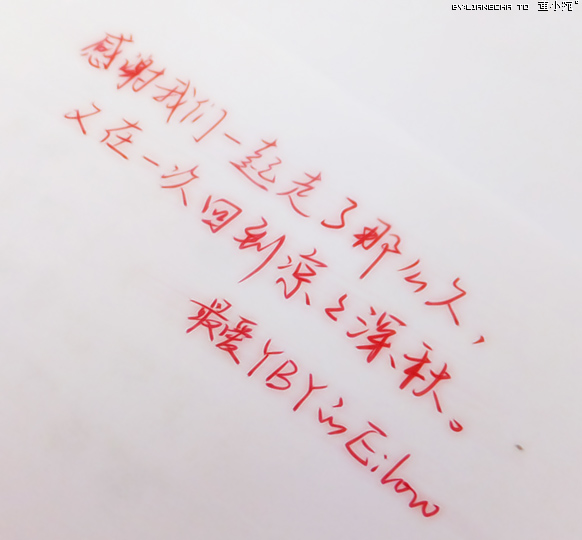 BY:LIANGCHA TO 画小宛"
感谢我们一起走了那么久,
又在一次回到凉之深秋。
最爱YBY的Eilow